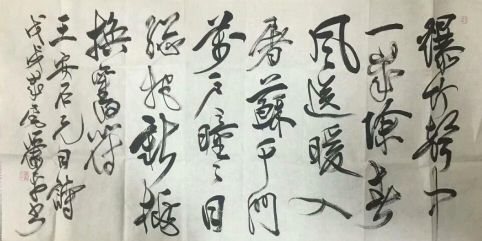 爆竹声中
一岁除春
风送暖入
屠蘇千門
萬户曈々日
總把新桃
換舊符
王安石元日詩
戊戌歲尾